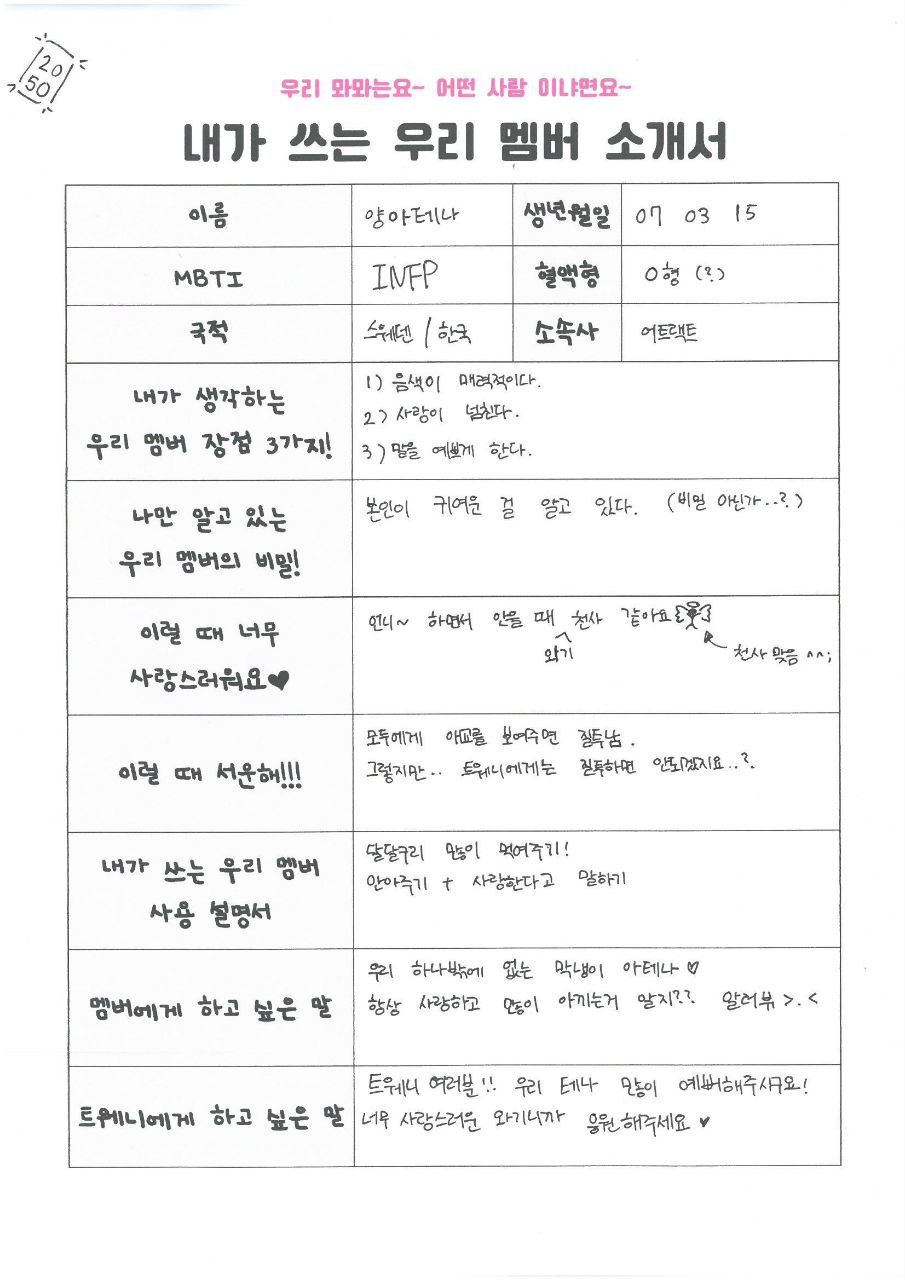 20
50
우리 와와는요~ 어떤 사람 이냐면요~
내가 쓰는 우리 멤버 소개서
이름 양아테나 생년월일 07 03 15
MBTI INFP 혈액형 O형 (?)
국적 스웨덴 / 한국 소속사 어트랙트
내가 생각하는
우리 멤버 장점 3가지!
1) 음색이 매력적이다.
2) 사랑이 넘친다.
3) 말을 예쁘게 한다.
나만 알고 있는
우리 멤버의 비밀!
본인이 귀여운 걸 알고 있다. (비밀 아닌가..?)
이럴 때 너무
사랑스러워요♥
언니~ 하면서 안을 때 천사 같아요
와기
천사 맞음 ^^;
이럴 때 서운해!!!
모두에게 애교를 보여주면 질투남.
그렇지만.. 트웨니에게는 질투하면 안되겠지요..?
내가 쓰는 우리 멤버
사용 설명서
달달구리 많이 먹여주기!
안아주기 + 사랑한다고 말하기
멤버에게 하고 싶은 말
우리 하나밖에 없는 막냉이 아테나 ♡
항상 사랑하고 많이 아끼는거 알지?? 알러뷰 >.<
트웨니에게 하고 싶은 말
트웨니 여러분!! 우리 테나 많이 예뻐해주시구요!
너무 사랑스러운 와기니까 응원해주세요 ♥